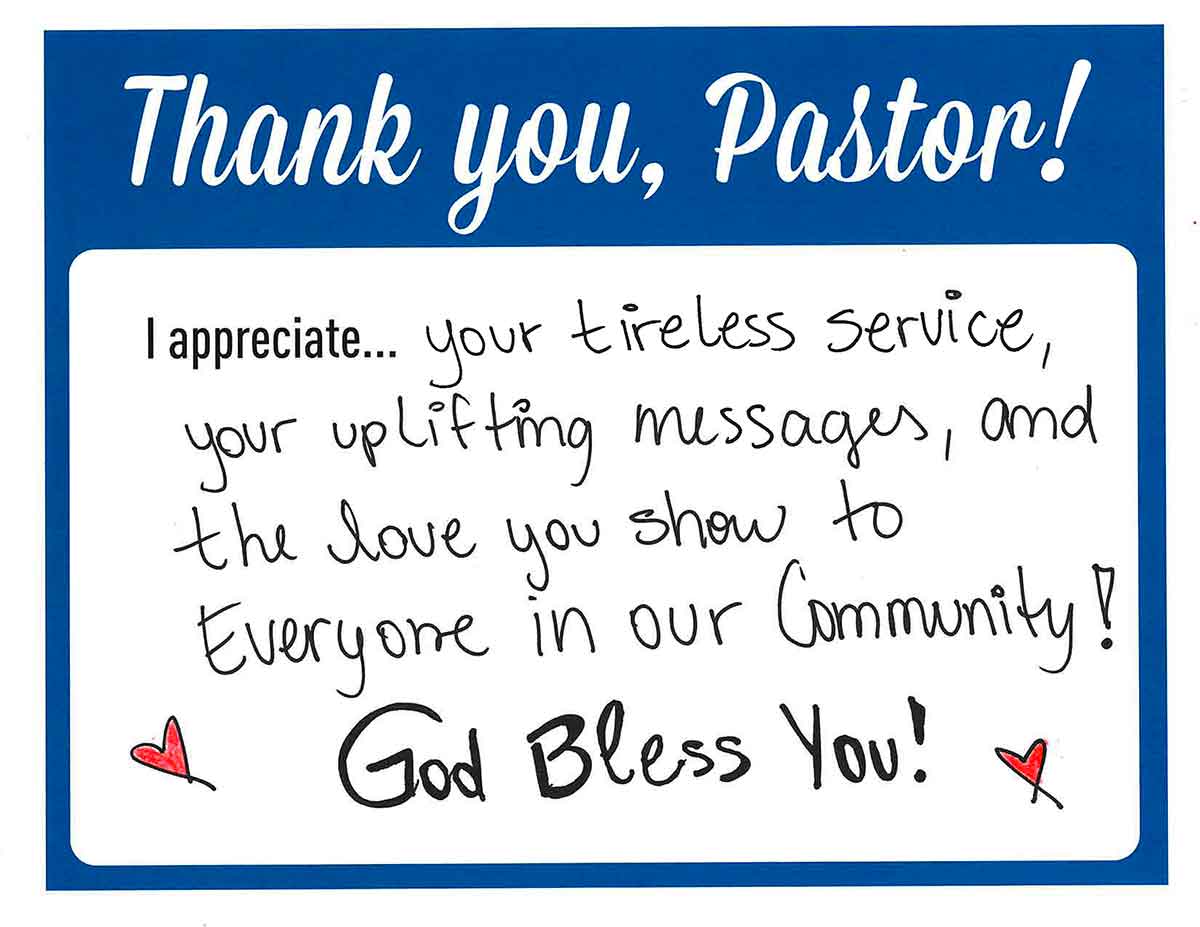 Thank you, Pastor!
I appreciate... your tireless service,
your uplifting messages, and
the love you show to
Everyone in our Community!
God Bless You!